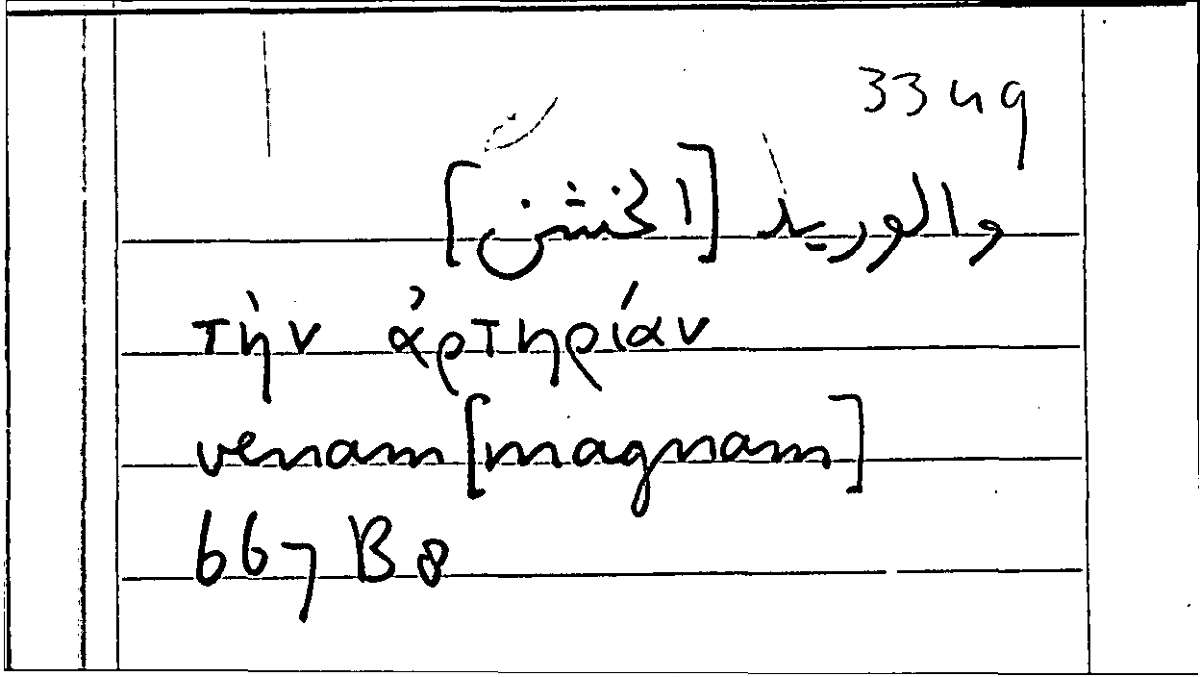 3349
والوريد [الخشن]
τὴν ἀρτηρίαν
venam [magnam]
667 B 8